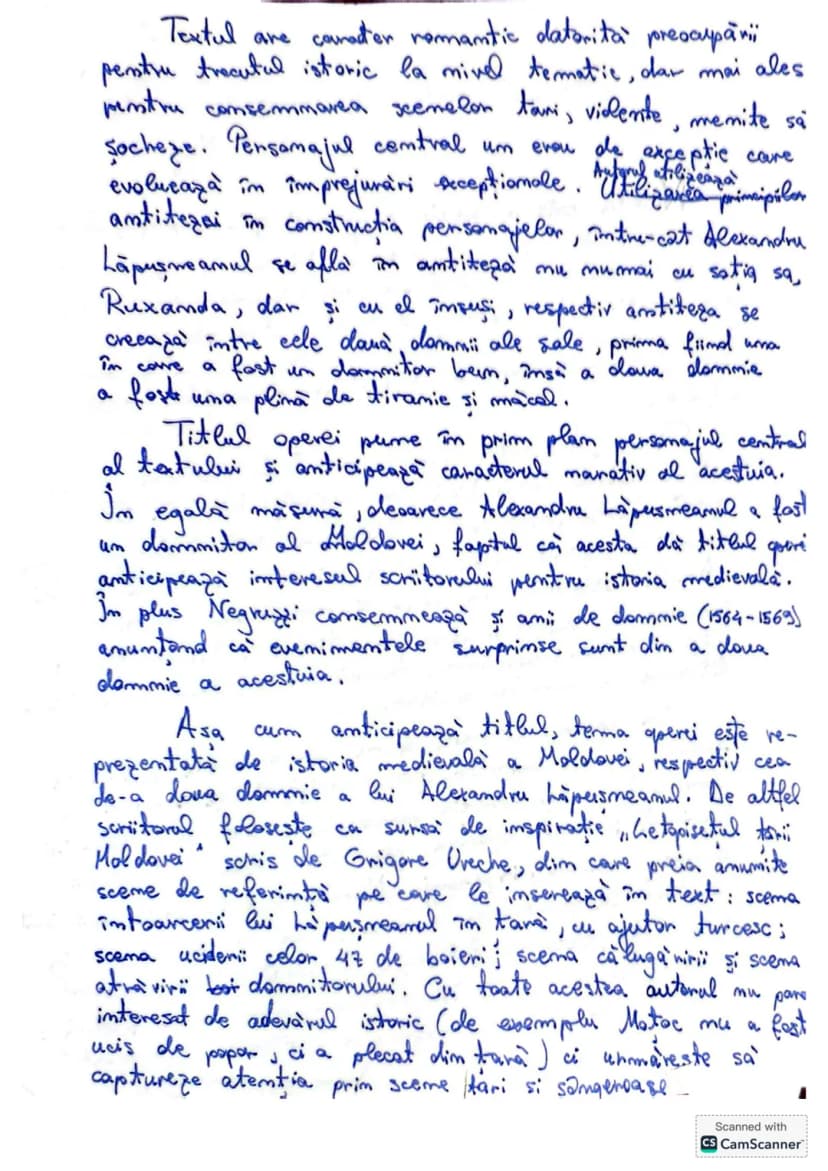 Textul are caracter romantic datorită preocupării
pentru trecutul istoric la nivel tematic, dar mai ales
pentru consemnarea scenelor tari, violente, menite să
șocheze. Personajul central un erou de excepție care
evoluează în împrejurări excepționale. Autorul utilizează Utilizarea principiilor
antitezei în construcția personajelor, întru-cât Alexandru
Lăpușneanul se află în antiteză nu numai cu soția sa,
Ruxanda, dar și cu el însuși, respectiv antiteza se
creează între cele două domnii ale sale, prima fiind una
în care a fost un domnitor bun, însă a doua domnie
a fost una plină de tiranie și măcel.
Titlul operei pune în prim plan personajul central
al textului și anticipează caracterul narativ al acestuia.
În egală măsură, deoarece Alexandru Lăpușneanul a fost
un domnitor al Moldovei, faptul că acesta dă titlul operei
anticipează interesul scriitorului pentru istoria medievală.
În plus Negruzzi consemnează și anii de domnie (1564-1569)
anunțând că evenimentele surprinse sunt din a doua
domnie a acestuia.
Așa cum anticipează titlul, tema operei este re-
prezentată de istoria medievală a Moldovei, respectiv cea
de-a doua domnie a lui Alexandru Lăpușneanul. De altfel
scriitorul folosește ca sursă de inspirație „Letopisețul țării
Moldovei" scris de Grigore Ureche, din care preia anumite
scene de referință pe care le inserează în text: scena
întoarcerii lui Lăpușneanul în țară, cu ajutor turcesc;
scena uciderii celor 47 de boieri; scena călugăririi și scena
otrăvirii domnitorului. Cu toate acestea autorul nu pare
interesat de adevărul istoric (de exemplu Moțoc nu a fost
ucis de popor, ci a plecat din țară) ci urmărește să
captureze atenția prin scene tări si sângeroase
Scanned with
CS CamScanner